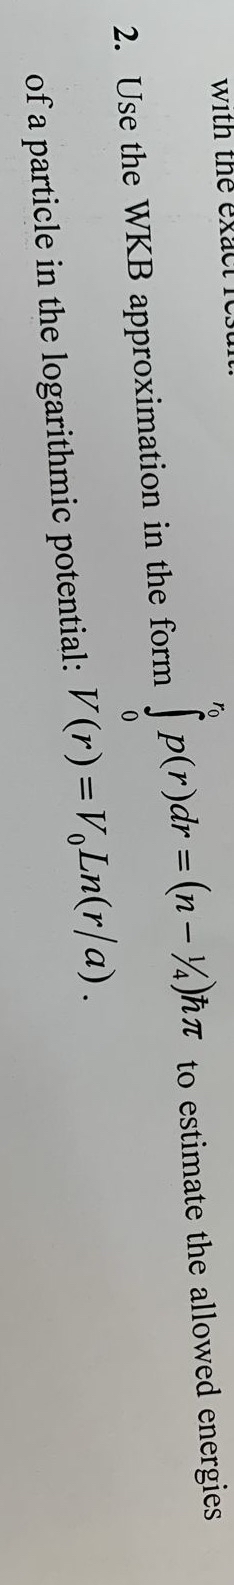 with the exact result.
2. Use the WKB approximation in the form ∫₀^{r₀} p(r)dr = (n − ¼)ħπ to estimate the allowed energies
of a particle in the logarithmic potential: V(r) = V₀Ln(r/a).